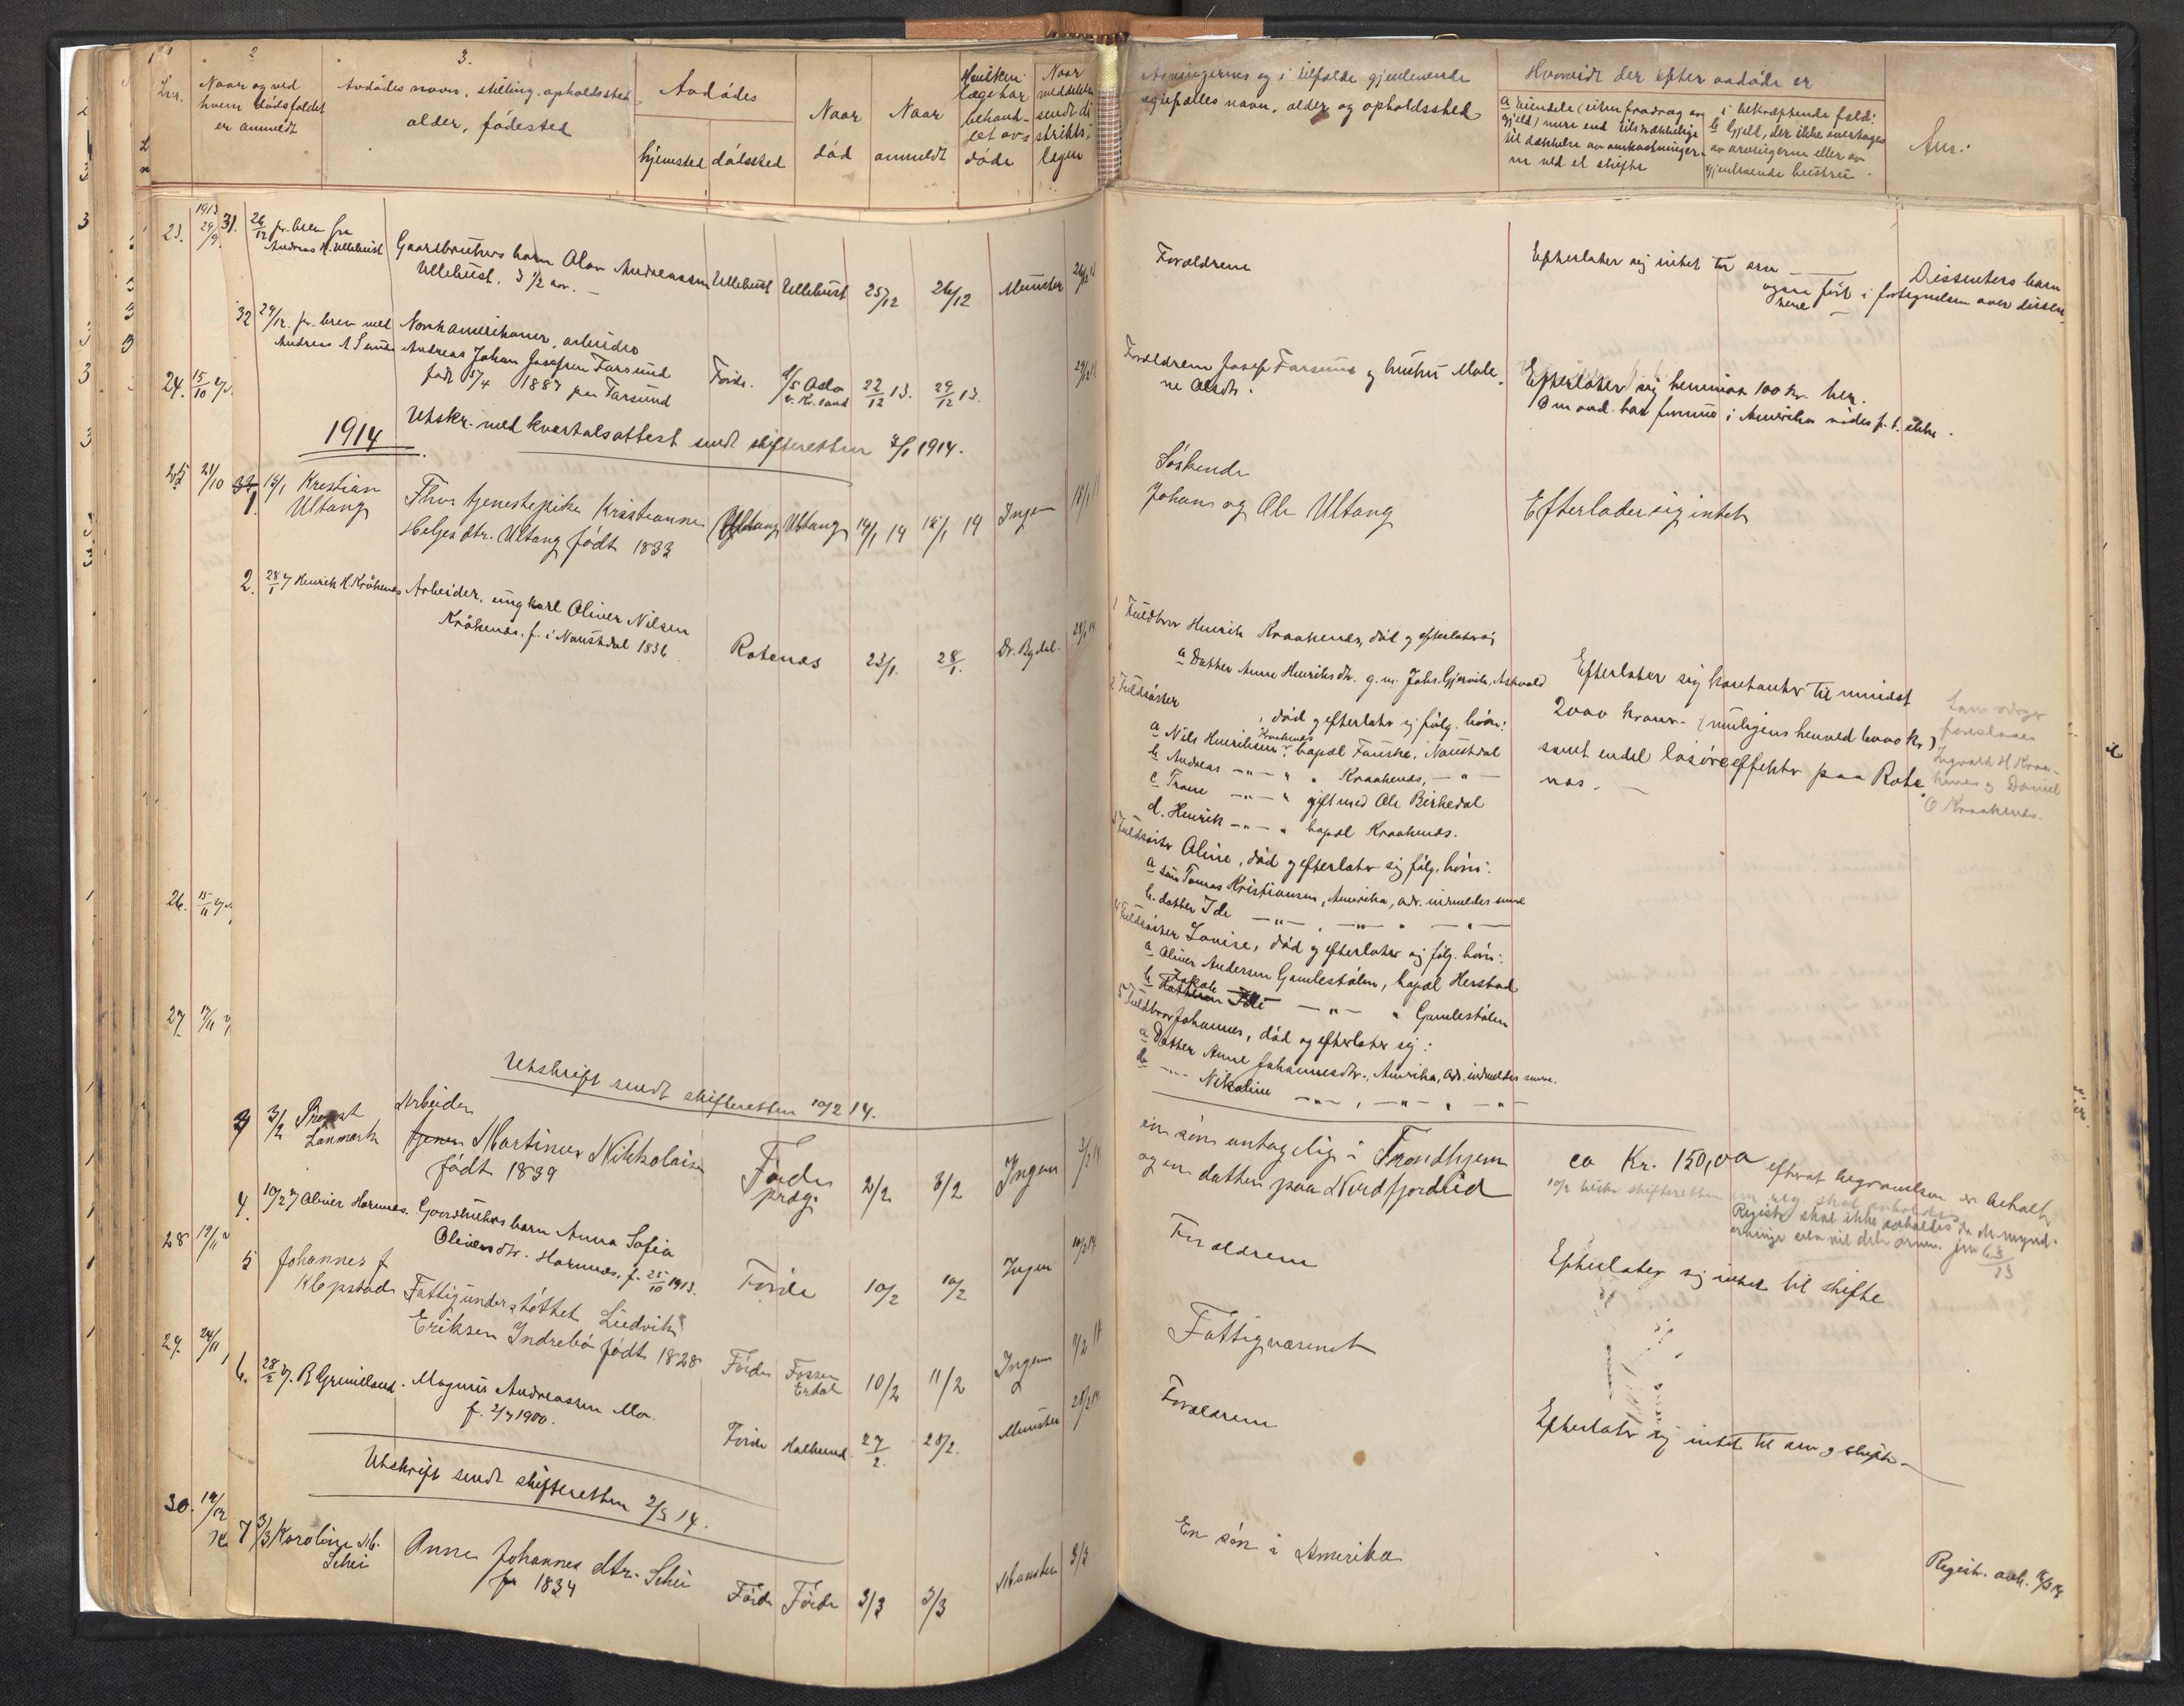 1
2
3.
Lnr.
Naar og ved
hvem dödsfaldet
er anmeldt
Avdödes navn, stilling, opholdssted
alder, födested
Avdödes
hjemsted
dödssted
Naar
död
Naar
anmeldt
Hvilken
læge har
behand-
let av-
döde
Naar
meddelelse
sendt di
strikts-
lægen
Arvingernes og i tilfælde gjenlevende
egtefælles navn, alder og opholdssted
Hvorvidt der efter avdöde er
a eiendele (uten fradrag av
gjeld) mere end tilstrækkelige
til dækkelse av omkostninger-
ne ved et skifte
i bekræftende fald:
b gjeld, der ikke overtages
av arvingerne eller av
gjenlevende hustru.
Anm.
23. 1913 29/9.
31. 26/12 pr. brev fra
Andreas H. Ullebust
Gaardbrukers barn Olav Andreassen
Ullebust. 3 1/2 aar.
Ullebust
Ullebust
25/12
26/12
Munster
Forældrene
Efterlater sig intet til arv
Dissenters barn
ogsaa fört i fortegnelsen over dissen-
terne
32 29/12. pr. brev med
Andreas A
Norskamerikaner, arbeider
Andreas Johan Josefsen Farsund
født 5/4 1887 paa Farsund
Förde.
Oslo
22/12 13.
29/12 13.
Forældrene Josef Farsund og hustru Male-
ne Olsdtr.
Efterlater sig henimot 100 kr. her.
Om avd. har formue i Amerika vides p. t. ikke.
24. 15/10
Utskr. med kvartalsattest sendt skifteretten 7/1 1914.
1914
25 21/10
1. 15/1 Kristian
Ultang
Fhv. tjenestepike Kristianne
Helges dtr. Ultang født 1833
Ultang
Ultang
14/1 14
15/1 14
Ingen
Söskende
Johans og Ole Ultang
Efterlader sig intet
2. 28/1 Henrik H. Kråkenes
Arbeider, ungkarl Oliver Nilsen
Kråkenes. f. i Naustdal 1836
Rotenes
23/1.
28/1.
Dr. Bydal.
28/1 14
1 Fuldbror Henrik Kraakenes, död og efterlater sig
a Datter Anne Henriksdtr. g. m. Johs. Gjervik, Askvold
2 Fuldsöster
, död og efterlater sig fölg. börn:
a Nils Henriksen Kraakenes, bopæl Fauske, Naustdal
b Andreas —"— " " Kraakenes, —"—
c Trane —"— " gift med Ole Birkedal
d. Henrik —"— " bopæl Kraakenes.
3 Fuldsöster Oline, död og efterlater sig fölg. börn:
a sön Tomas Kristiansen, Amerika, adr. indmeldes senere
b. datter Ida —"— , —"— " —"—
4 Fuldsöster Lovise, död og efterlater sig fölg. börn:
a Oliver Andersen Gamlestölen, bopæl Herstad
b Jakob —"— " Gamlestölen
5 Fuldbror Johannes, död og efterlater sig:
a Datter Anne Johannesdtr., Amerika, adr. indmeldes senere.
b —"— Nikoline —"— , —"— , —"—
Efterlater sig kontanter til mindst
2000 kroner (muligens henved 6000 kr.)
samt endel lösöreeffekter paa Rote-
nes.
Som værge
foreslaaes
Ingvald H Kraa-
kenes og Daniel
O Kraakenes.
26. 15/11
27. 17/11
Utskrift sendt skifteretten 10/2 14.
3 3/2 Provst
Lanmark
Arbeider
Martinus Nikkolaisen
født 1839
Førde
præg.
2/2
3/2
Ingen
3/2 14
en sön antagelig i Trondhjem
og en datter paa Nordfjordeid
ca Kr. 150,00 efterat begravelsen er betalt
10/2 skifteretten om reg. skal avholdes
Registr. skal ikke avholdes da de mynd.
arvinger selv vil dele arven.
4. 10/2 Oliver Hornnes.
Gaardbrukers barn Anna Sofia
Oliversdtr. Hornnes, f. 25/10 1913.
Förde
10/2
10/2
Ingen
10/2 14
Forældrene
Efterlater sig intet til skifte
28 19/11
5 Johannes J
Klopstad
Fattigunderstöttet Ludvik
Eriksen Indrebö født 1828
Förde
Fossen
Erdal
10/2
11/2
Ingen
11/2 14
Fattigvæsenet
29. 24/11
6. 28/2 R Grimeland.
Magnus Andreassen Mo.
f. 2/7 1900.
Förde
Halbrend.
27/2.
28/2.
Munster
28/2 14
Forældrene
Efterlater sig intet til arv og skifte.
Utskrift sendt skifteretten 2/3 14.
30. 19/12
7 3/3 Karoline M.
Schei
Anne Johannes dtr. Schei
f. 1834
Förde
Förde
3/3
3/3
Munster
3/3
En sön i Amerika
Registr. avh.